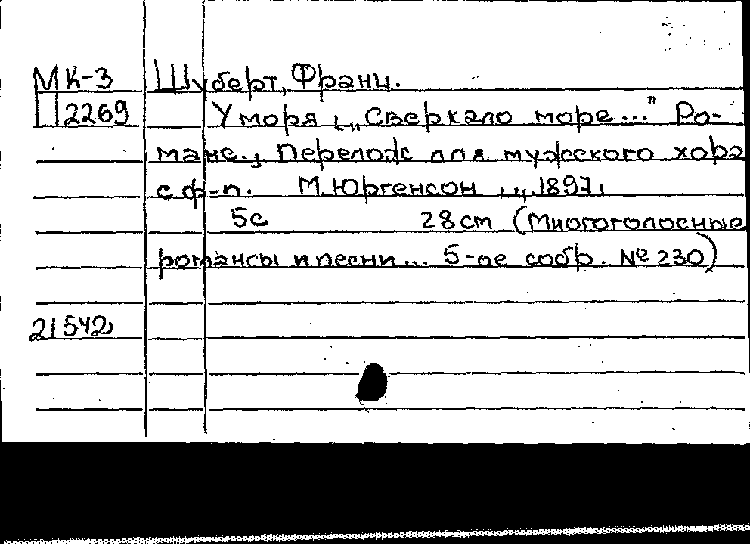 МК-3 Шуберт, Франц.
П2269 У моря, „Сверкало море..." Ро-
манс., Перелож для мужского хора
с ф-п. М. Юргенсон, „ 1897,
5с 28см (Многоголосные
романсы и песни... 5-ое собр. № 230)
21542